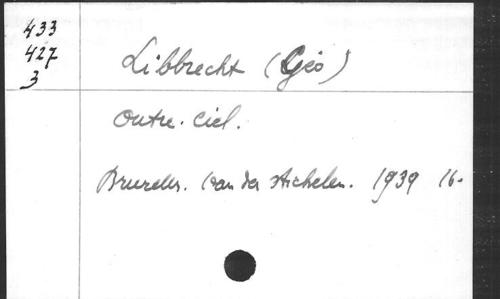 433
427
3
Libbrecht (Géo)
Outre-Ciel.
Bruxelles. Van der Stichelen. 1939 16-